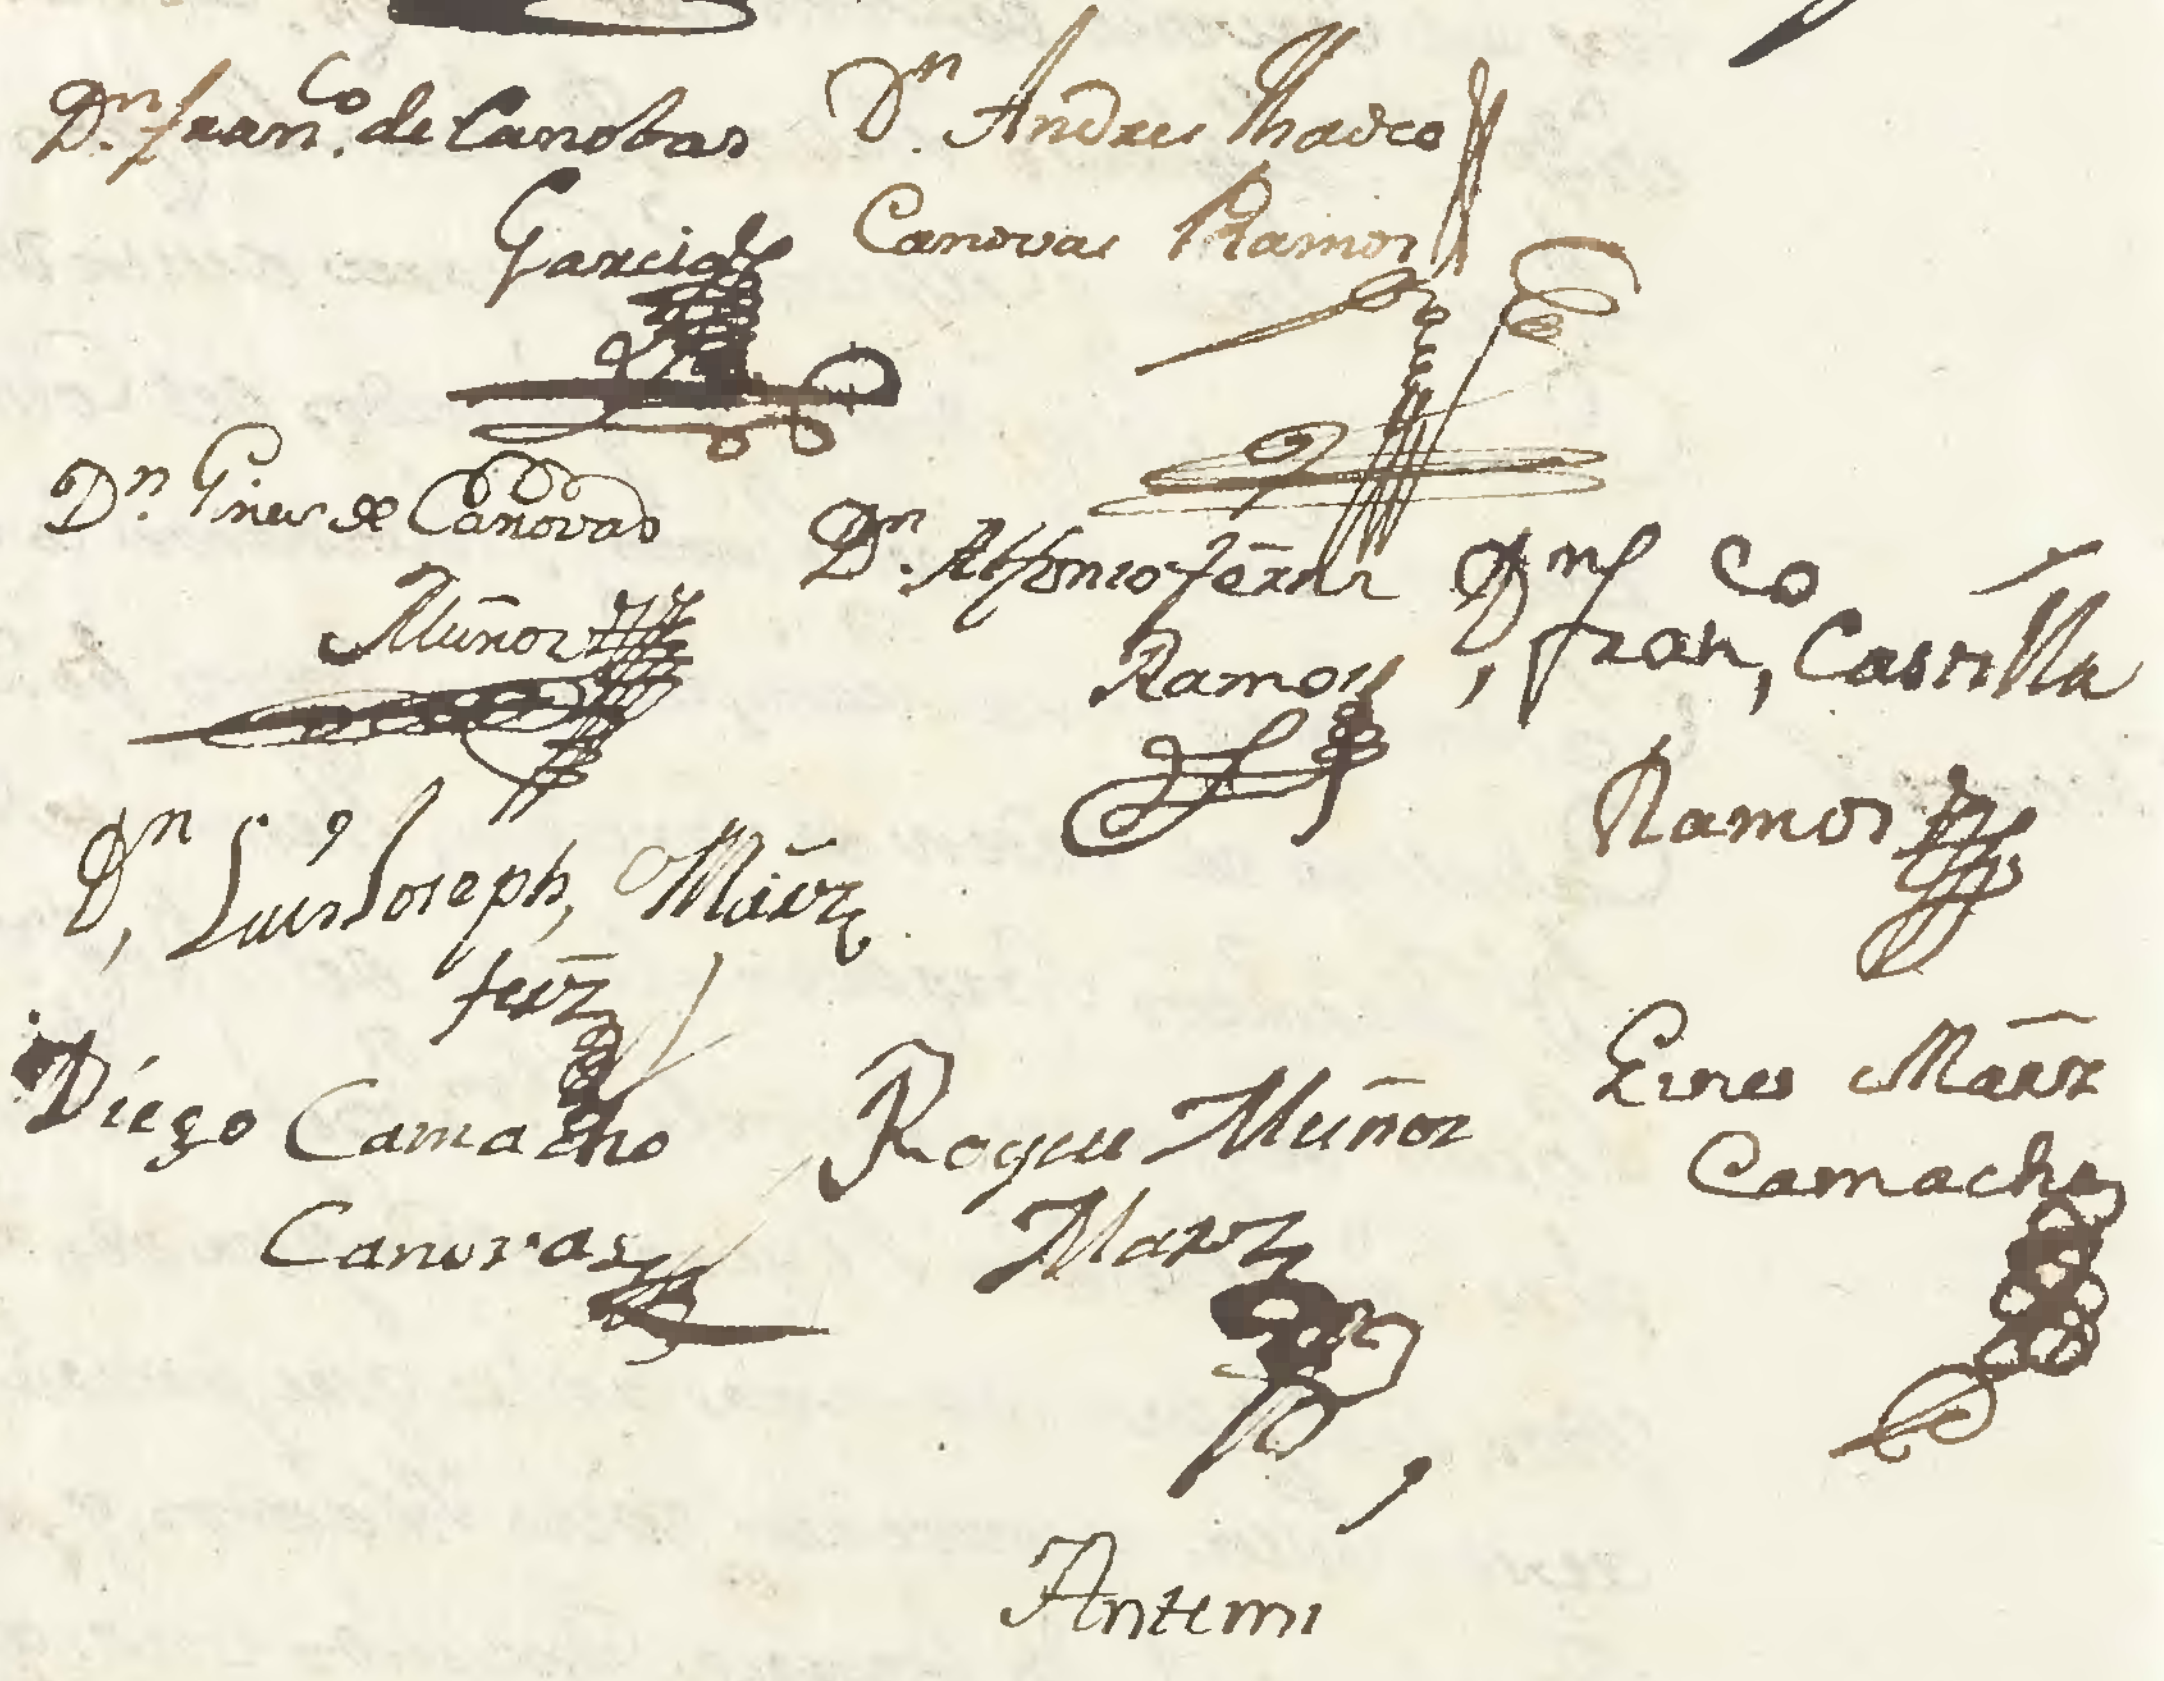 Dn. Franco. de Canobas
Garcia
Dn. Andres Thadeo
Canovas Ramos
Dn. Gines de Canovas
Muñoz
Dn. Alfonso Fern
Ramos
Dn, Franco, Castilla
Ramos
Dn, Luis Joseph, Mãrz
ferz
Diego Camacho
Canovas
Roque Muñoz
Marz
Gines Mãrz
Camacho
Antemi